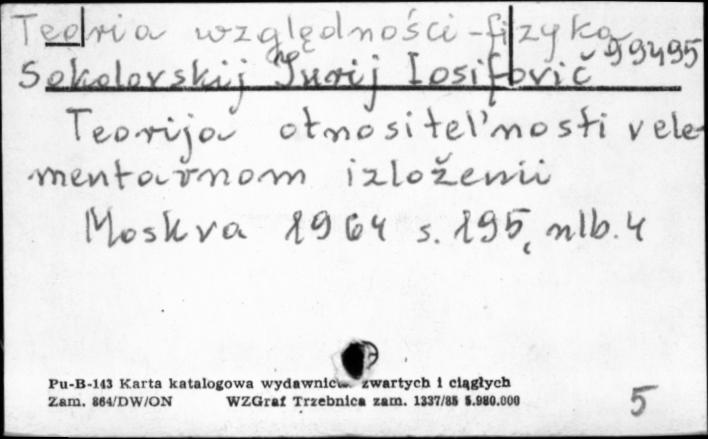 Teoria względności - fizyka
99495
Sokolovskij Jurij Iosifovič
Teorija otnositel'nosti v ele-
mentarnom izloženii
Moskva 1964 s. 195, nlb. 4
Pu-B-143 Karta katalogowa wydawnictw zwartych i ciągłych
Zam. 864/DW/ON WZGraf Trzebnica zam. 1337/85 5.980.000
5